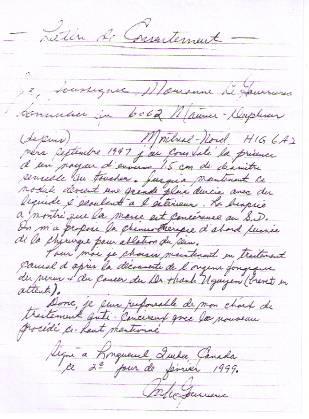 Lettre de Consentement
Je, soussignée
domiciliée au 6062
(depuis) Montréal-Nord. H1G 6A2
vers septembre 1997 j'ai constaté la présence
d'un noyau d'environ 1.5 cm de diamètre
sensible au toucher. jusque maintenant ce
nodule devient une grande plaie durcie avec du
liquide s'écoulant à l'extérieur. La biopsie
a montré que la masse est cancéreuse au S.D.
On m'a proposé la chimiothérapie d'abord suivie
de la chirurgie pour ablation du sein.
Pour moi je choisis maintenant un traitement
d'après la découverte de l'origine fongique
du cancer du Dr Nguyen (brevet en
attente).
Donc, je suis responsable de mon choix de
traitement anti-cancéreux avec le nouveau
procédé ci-haut mentionné
Signé à Longueuil, Québec, Canada
ce 2e jour de février 1999.